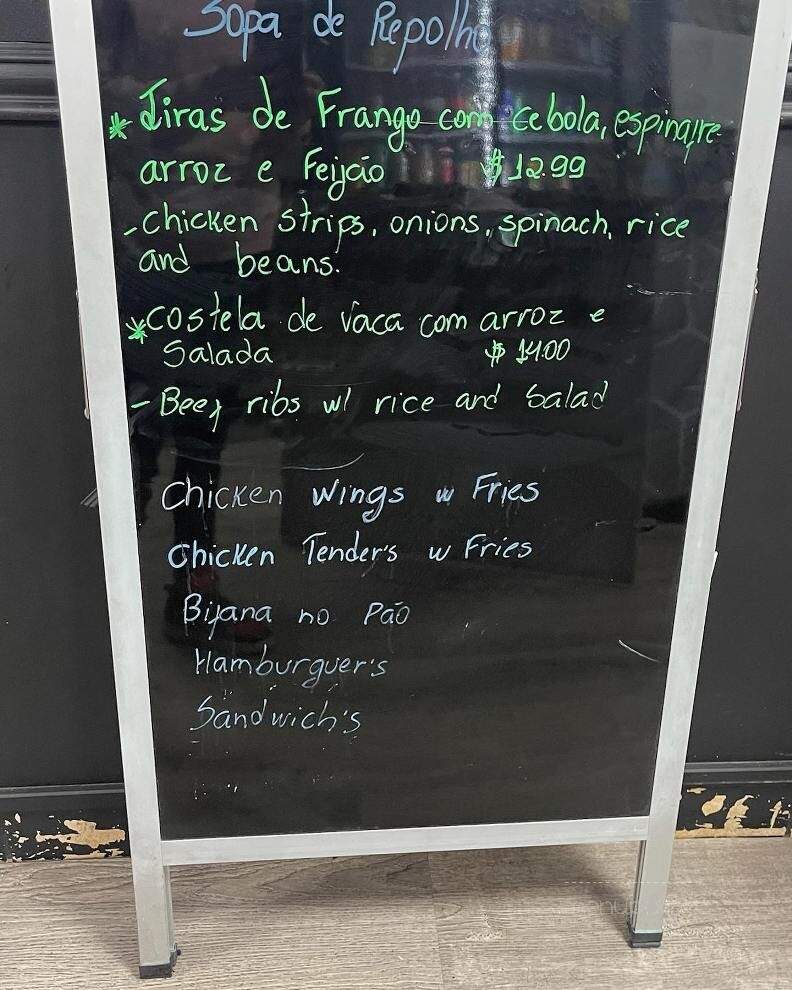 Sopa de Repolho
* Tiras de Frango com cebola, espinafre
arroz e Feijão $12.99
- chicken strips, onions, spinach, rice
and beans.
* costela de vaca com arroz e
Salada $14.00
- Beef ribs w/ rice and Salad
Chicken Wings w Fries
Chicken Tender's w Fries
Bifana no Pão
Hamburguer's
Sandwich's